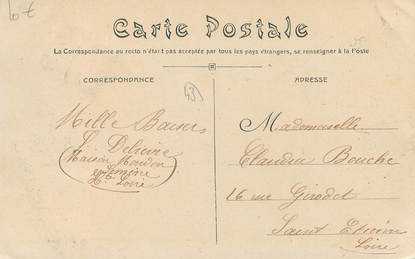 Lot
Carte Postale
La Correspondance au recto n'était pas acceptée par tous les pays étrangers, se renseigner à la Poste
CORRESPONDANCE
43
Mille Baisers
Maison
Hte Loire
ADRESSE
Mademoiselle
Claudia Bouche
16 rue Girodet
Saint Etienne
Loire